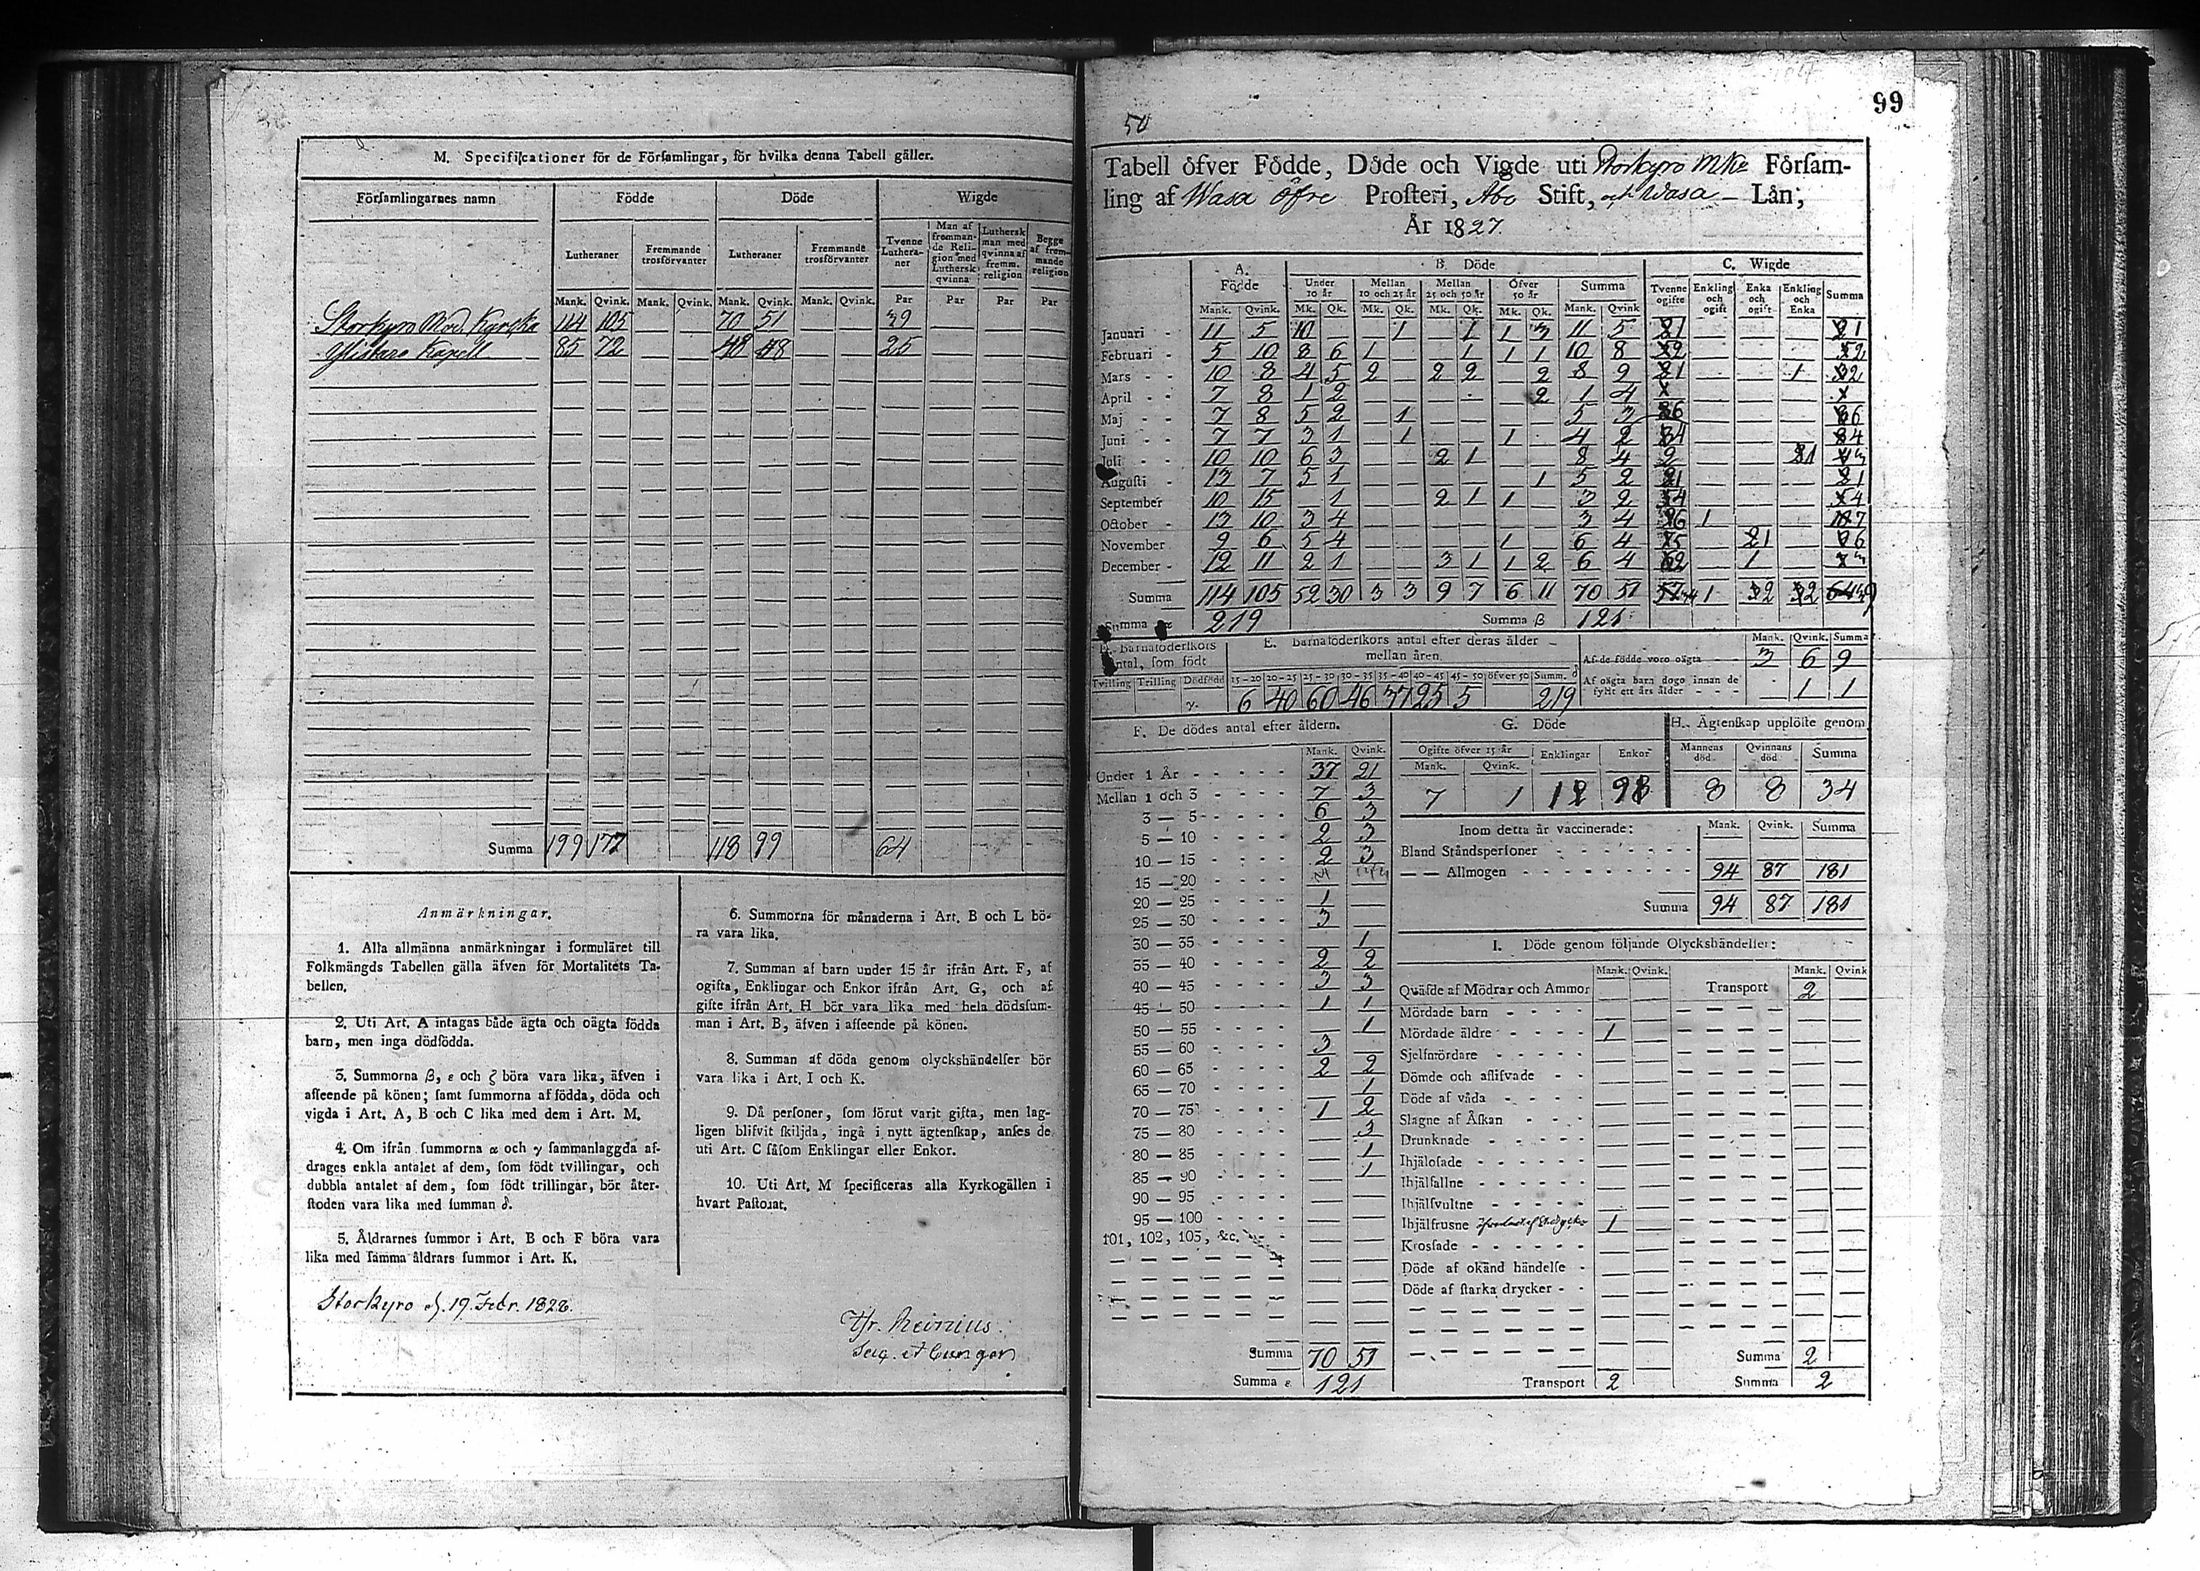 M. Specificationer för de Församlingar, för hvilka denna Tabell gäller.
Församlingarnes namn Födde Döde Wigde
Lutheraner Fremmande trosförvanter Lutheraner Fremmande trosförvanter Tvenne Lutheraner Man af fremmande Religion med Luthersk qvinna Luthersk man med qvinna af fremm. religion Begge af fremmande religion
Mank. Qvink. Mank. Qvink. Mank. Qvink. Mank. Qvink. Par Par Par Par
Storkyro Mod. Kyrka 114 105 70 51 39
Kapell 85 72 48 48 25
Summa 199 177 118 99 64
Anmärkningar.
1. Alla allmänna anmärkningar i formuläret till
Folkmängds Tabellen gälla äfven för Mortalitets Ta-
bellen.
2. Uti Art. A intagas både ägta och oägta födda
barn, men inga dödfödda.
3. Summorna β, ε och ζ böra vara lika, äfven i
affeende på könen; samt summorna af födda, döda och
vigda i Art. A, B och C lika med dem i Art. M.
4. Om ifrån summorna α och γ sammanlaggda af-
drages enkla antalet af dem, som födt tvillingar, och
dubbla antalet af dem, som födt trillingar, bör åter-
stoden vara lika med summan δ.
5. Åldrarnes summor i Art. B och F böra vara
lika med samma åldrars summor i Art. K.
6. Summorna för månaderna i Art. B och L bö-
ra vara lika.
7. Summan af barn under 15 år ifrån Art. F, af
ogifta, Enklingar och Enkor ifrån Art. G, och af
gifte ifrån Art. H bör vara lika med hela dödssum-
man i Art. B, äfven i affeende på könen.
8. Summan af döda genom olyckshändelser bör
vara lika i Art. I och K.
9. Då personer, som förut varit gifta, men lag-
ligen blifvit skiljda, ingå i nytt ägtenskap, anses de
uti Art. C såsom Enklingar eller Enkor.
10. Uti Art. M specificeras alla Kyrkogällen i
hvart Pastorat.
Storkyro d. 19 Febr. 1828.
Reinius.
99
50
Tabell öfver Födde, Döde och Vigde uti Storkyro Mke Försam-
ling af Wasa Öfre Prosteri, Åbo Stift, och Wasa Län;
År 1827.
A. Födde B. Döde C. Wigde
Under 10 år Mellan 10 och 25 år Mellan 25 och 50 år Öfver 50 år Summa Tvenne ogifte Enkling och ogift Enka och ogift Enkling och Enka Summa
Mank. Qvink. Mk. Qk. Mk. Qk. Mk. Qk. Mk. Qk. Mank. Qvink.
Januari 11 5 10 1 1 1 3 11 5 1 1
Februari 5 10 8 6 1 1 1 1 10 8 2 2
Mars 10 8 4 5 2 2 2 2 8 9 1 1 2
April 7 8 1 2 2 1 4
Maj 7 8 5 2 1 5 3 6 6
Juni 7 7 3 1 1 1 4 2 4 4
Juli 10 10 6 3 2 1 8 4 2 1 3
Augusti 13 7 5 1 1 5 2 1 1
September 10 15 1 2 1 1 3 2 4 4
October 13 10 3 4 3 4 6 1 7
November 9 6 5 4 1 6 4 5 1 6
December 12 11 2 1 3 1 1 2 6 4 2 1 3
Summa 114 105 52 30 3 3 9 7 6 11 70 51 34 1 2 2 39
Summa α 219 Summa β 121
D. Barnaföderskors antal, som födt
Tvilling Trilling Dödfödd
γ.
E. Barnaföderskors antal efter deras ålder
mellan åren.
15-20 20-25 25-30 30-35 35-40 40-45 45-50 öfver 50 Summ. δ
6 40 60 46 37 25 5 219
Mank. Qvink. Summa
Af de födde voro oägta 3 6 9
Af oägta barn dogo innan de
fyllt ett års ålder 1 1
F. De dödes antal efter åldern.
Mank. Qvink.
Under 1 År 37 21
Mellan 1 och 3 7 3
3 — 5 6 3
5 — 10 2 3
10 — 15 2 3
15 — 20
20 — 25 1
25 — 30 3
30 — 35 1
35 — 40 2 2
40 — 45 3 3
45 — 50 1 1
50 — 55 1
55 — 60 3
60 — 65 2 2
65 — 70 1
70 — 75 1 2
75 — 80 3
80 — 85 1
85 — 90 1
90 — 95
95 — 100
101, 102, 103, &c.
Summa 70 51
Summa ε 121
G. Döde
Ogifte öfver 15 år Enklingar Enkor
Mank. Qvink.
7 1
H. Ägtenskap upplöste genom
Mannens död Qvinnans död Summa
8 8 34
Inom detta år vaccinerade: Mank. Qvink. Summa
Bland Ståndspersoner
— — Allmogen 94 87 181
Summa 94 87 181
I. Döde genom följande Olyckshändelser:
Mank. Qvink. Mank. Qvink
Qväfde af Mödrar och Ammor Transport 2
Mördade barn
Mördade äldre 1
Sjelfmördare
Dömde och aflifvade
Döde af våda
Slagne af Åskan
Drunknade
Ihjälosade
Ihjälfallne
Ihjälsvultne
Ihjälfrusne 1
Krossade
Döde af okänd händelse
Döde af starka drycker
Summa 2
Transport 2 Summa 2